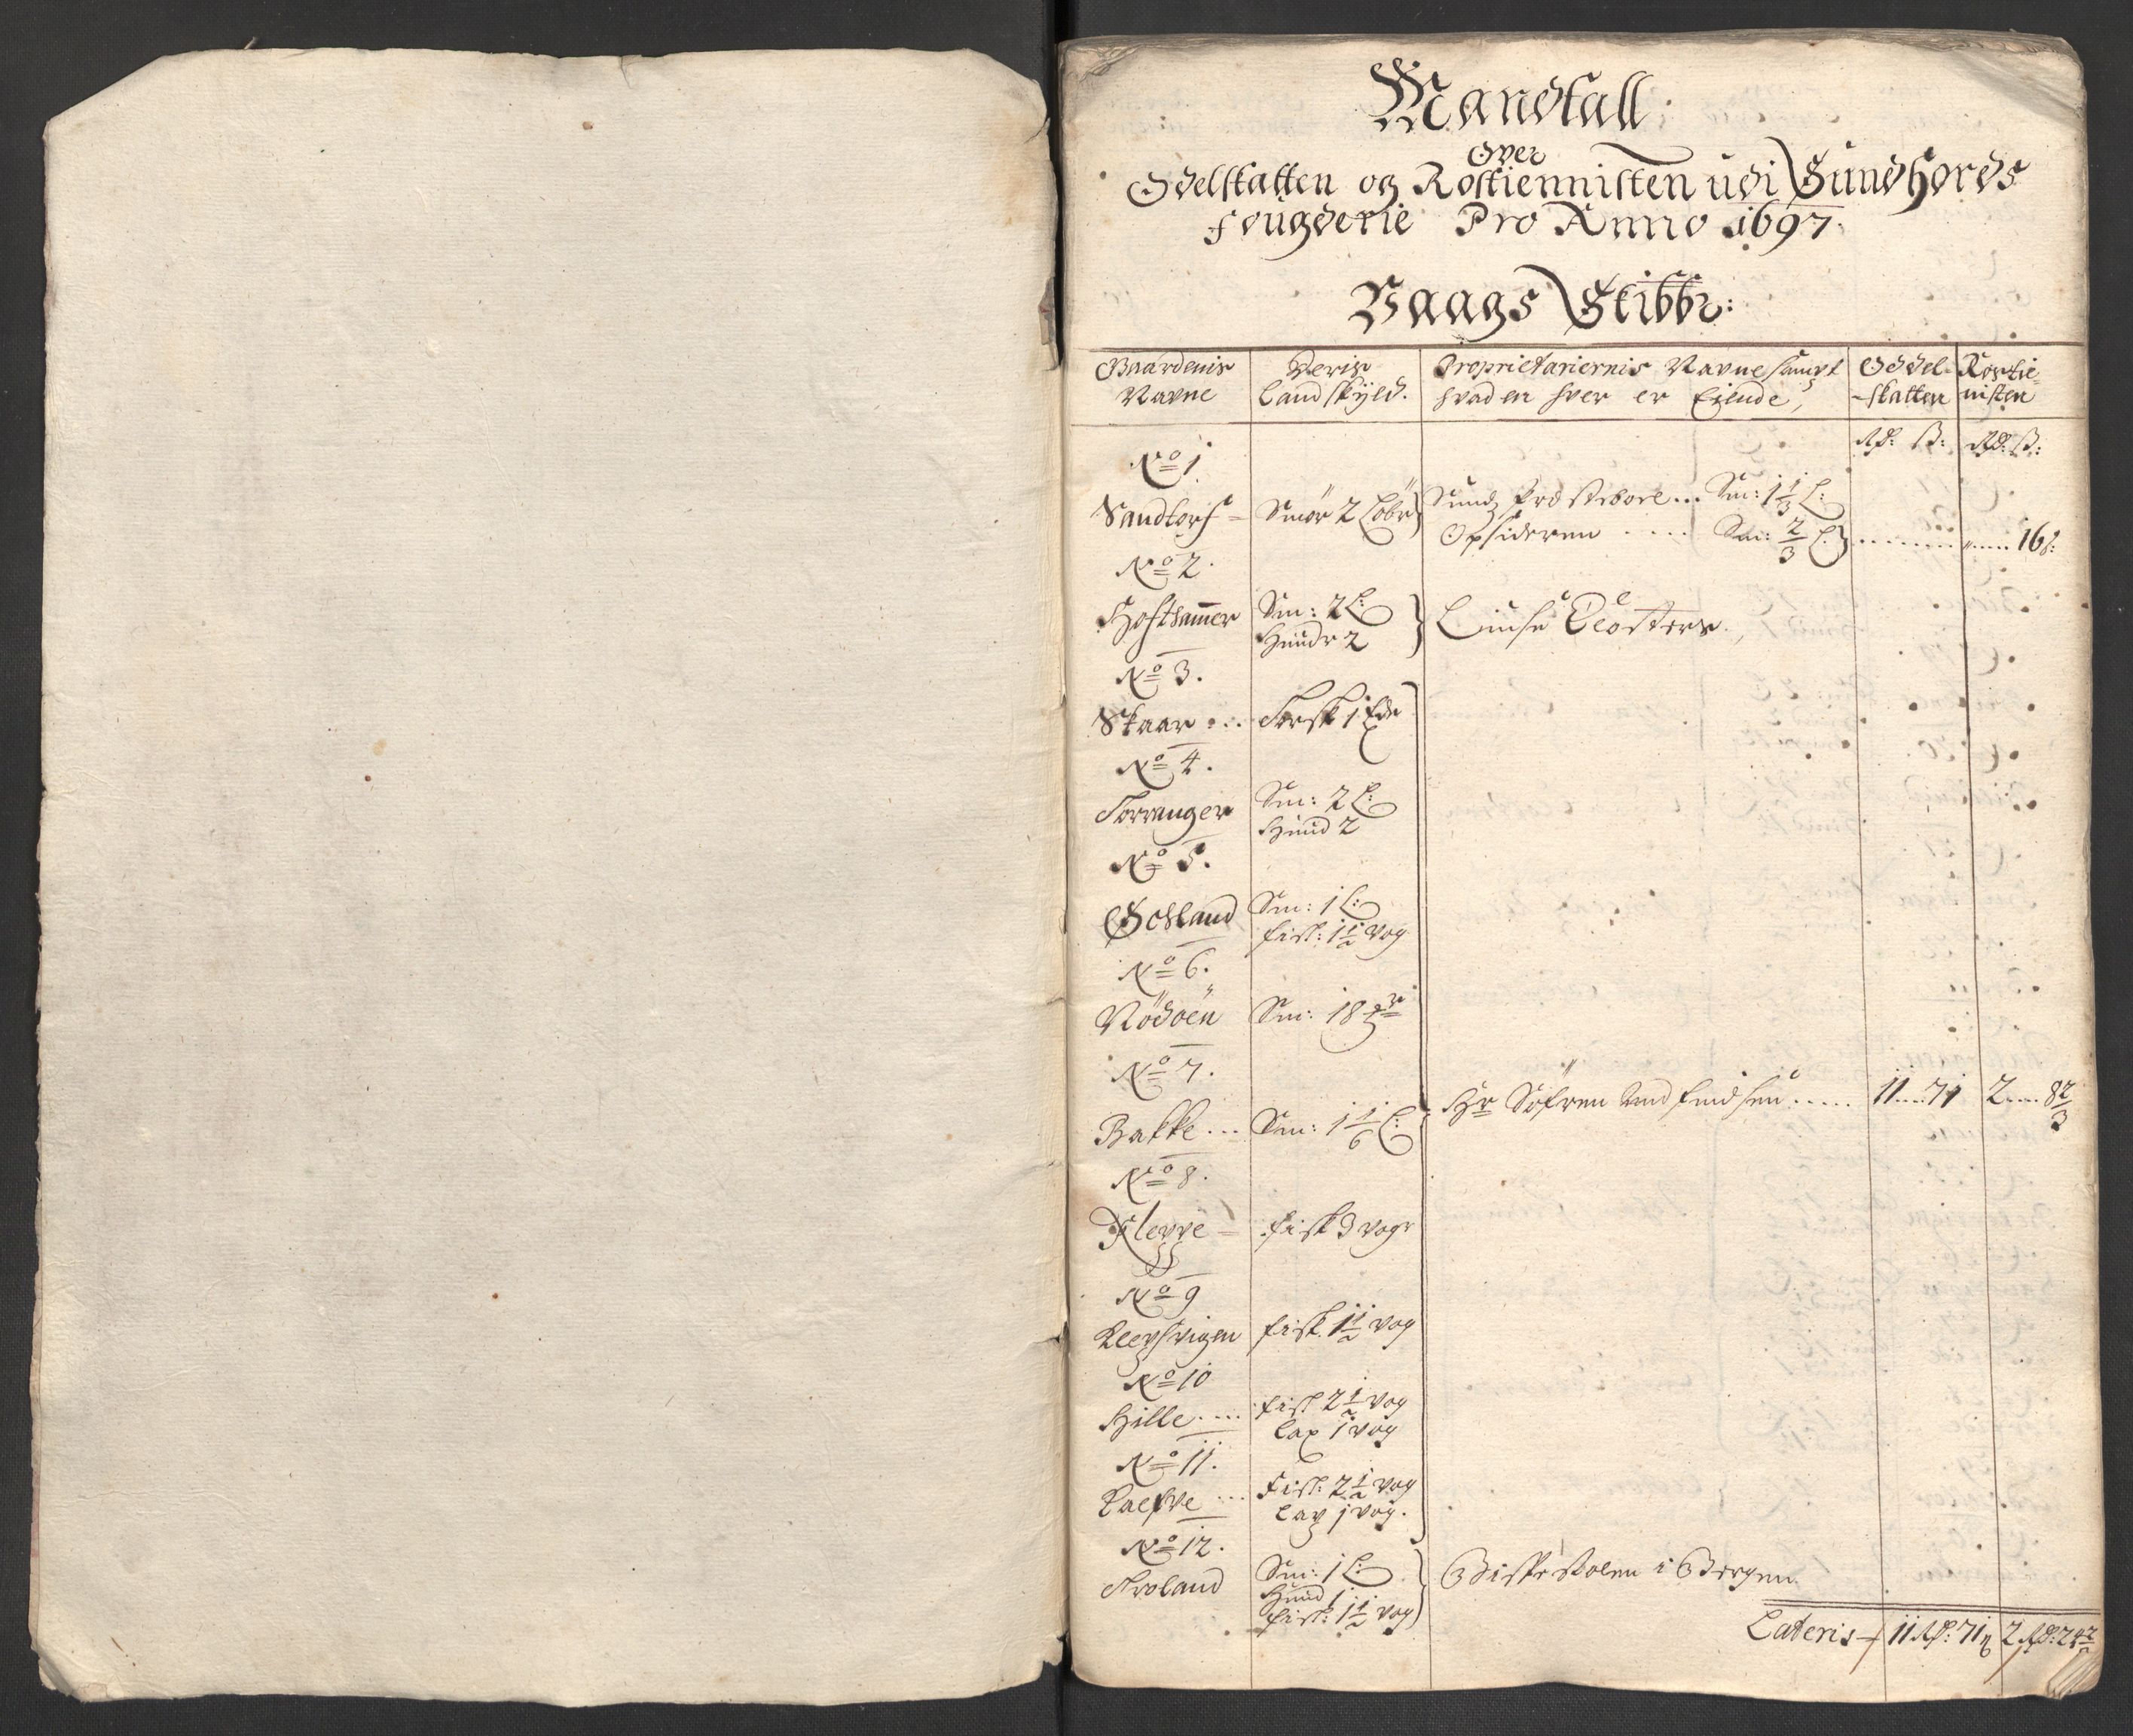 Mandtall
Over
Odelskatten og Rostiennisten udi Sundhords
Fougderie Pro Anno 1697.
Vaags Skibbr:
Gaardenis Navne
Deris Landskyld.
Proprietariernis Navne sampt hvad en hver er Eiende,
Oddel-skatten
Rostienisten
Rd: ß: Rd: ß:
No 1
Sandtorf = Smör 2 Löbr Sundz Præstebord... Sm: 1 1/3 L:
Opsideren .... Sm: 2/3 L: ........ " ..... 16 ß:
No 2.
Hofthamer Sm: 2 L:
Huudr 2 Liuse Closters.
No 3.
Skaar ... Torsk 1
No 4.
Torranger Sm: 2 L:
Huud 2
No 5.
Sm: 1 L:
fisk: 1 1/2 vog
No 6.
Sm: 18
No 7.
Bakke ... Sm: 1 1/6 L: Hr Söfren ..... 11 .... 71 2 .... 8 2/3
No 8.
Klepve = fisk 3 vogr
No 9
fisk. 1 1/2 vog
No 10
Hille .... fisk 2 1/2 vog
Lax 1 vog
No 11.
... Fisk: 2 1/2 vog
Lax 1 vog.
No 12.
Troland Sm: 1 L:
Huud 1
fisk: 1 1/2 vog Bispestolen i Bergen.
Lateris 11 Rd: 71 ß 2 Rd: 24 2/3